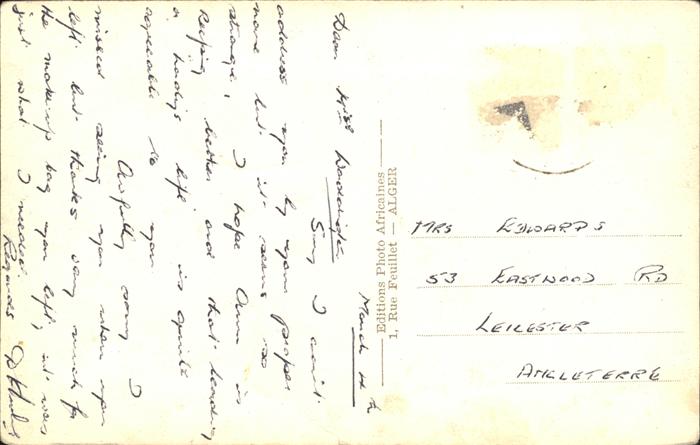 March 4th
Dear Miss
Sorry I can't
address you by your proper
name but it seems so
strange, I hope Ann is
keeping better and that leading
a lady's life is quite
agreeable to you
Awfully sorry I
missed seeing you when you
left but thanks very much for
the make-up bag you left, it was
just what I needed.
Regards
Editions Photo Africaines
1, Rue Feuillet — ALGER
MRS EDWARDS
53 EASTWOOD RD
LEICESTER
ANGLETERRE